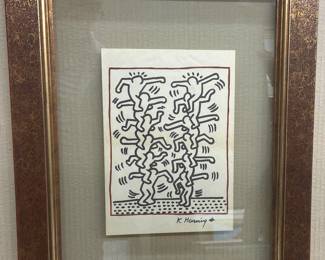 K. Haring